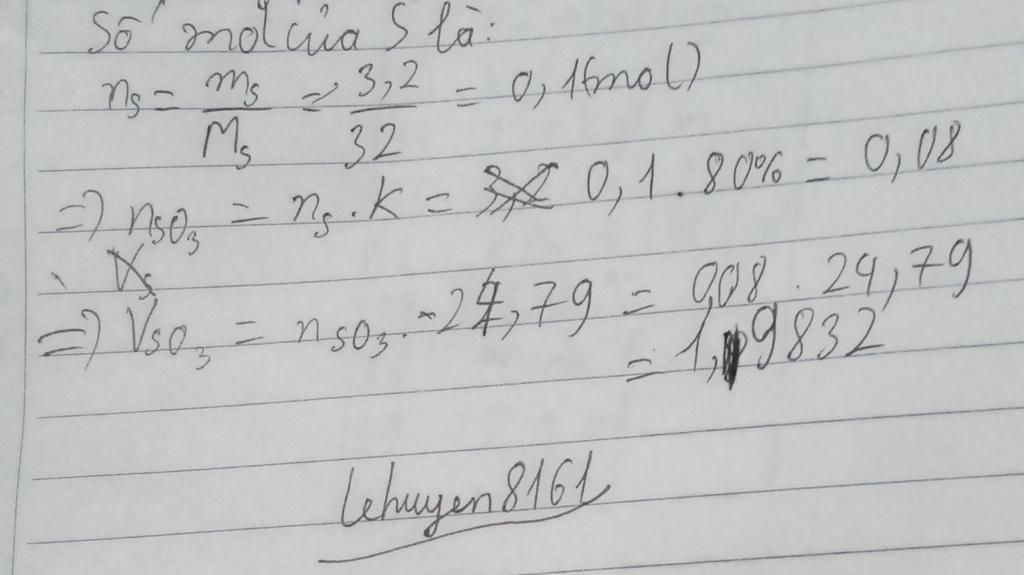 Số mol của S là:
nₛ = mₛ/Mₛ = 3,2/32 = 0,1(mol)
=) nSO₃ = nₛ . K = 0,1 . 80% = 0,08
Vₛ
=) VSO₃ = nSO₃ . 24,79 = 0,08 . 24,79
= 1,9832
lehuyen8161